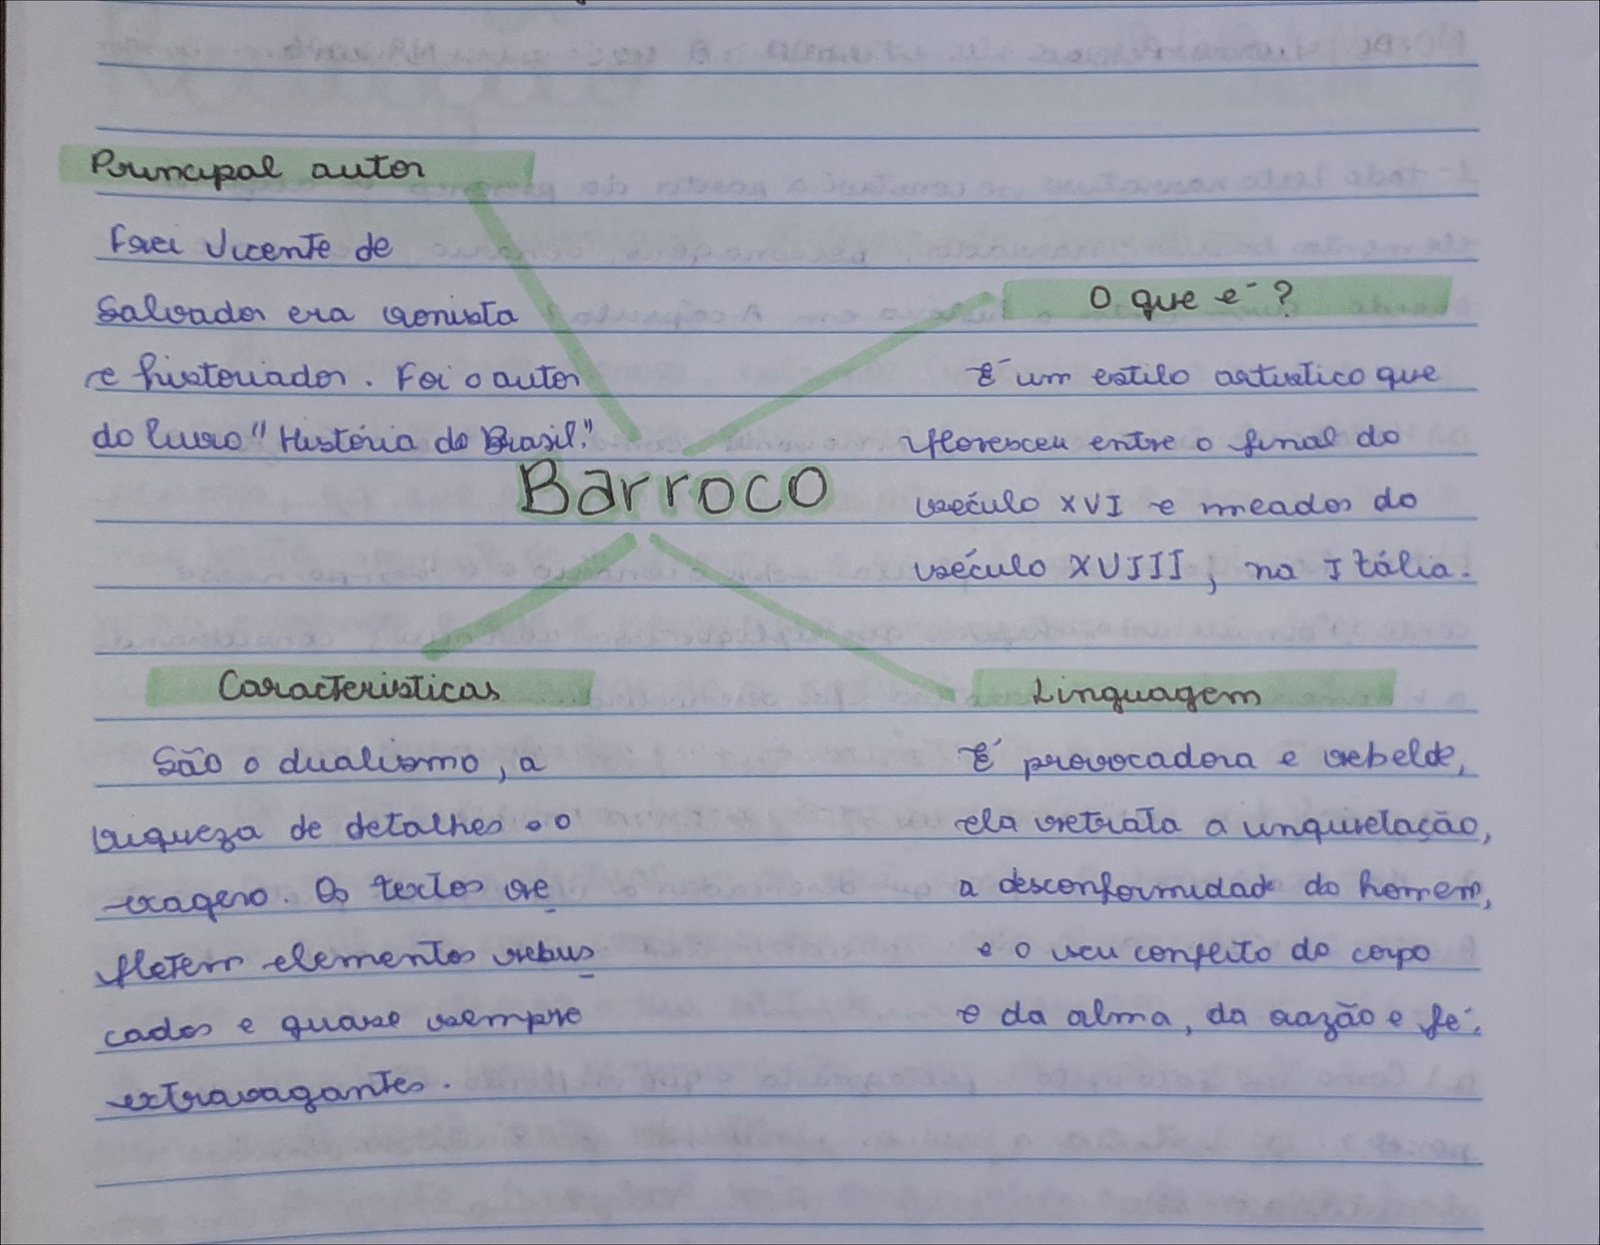 Principal autor
Frei Vicente de
Salvador era cronista
e historiador. Foi o autor
do livro "História do Brasil."
O que é?
É um estilo artístico que
floresceu entre o final do
século XVI e meados do
século XVIII, na Itália.
Barroco
Caracteristicas
São o dualismo, a
riqueza de detalhes e o
exagero. Os textos re
fletem elementos rebus
cados e quase sempre
extravagantes.
Linguagem
É provocadora e rebelde,
ela retrata a inquietação,
a desconformidade do homem,
e o seu conflito do corpo
e da alma, da razão e fé.